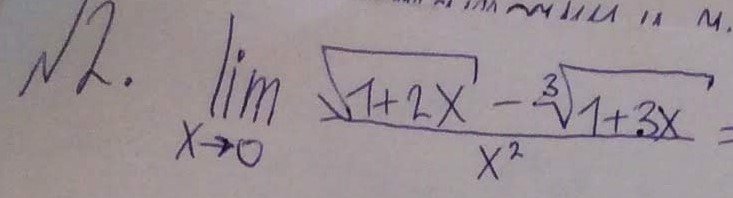 №2. lim x→0 (√(1+2x) - ∛(1+3x)) / x² =